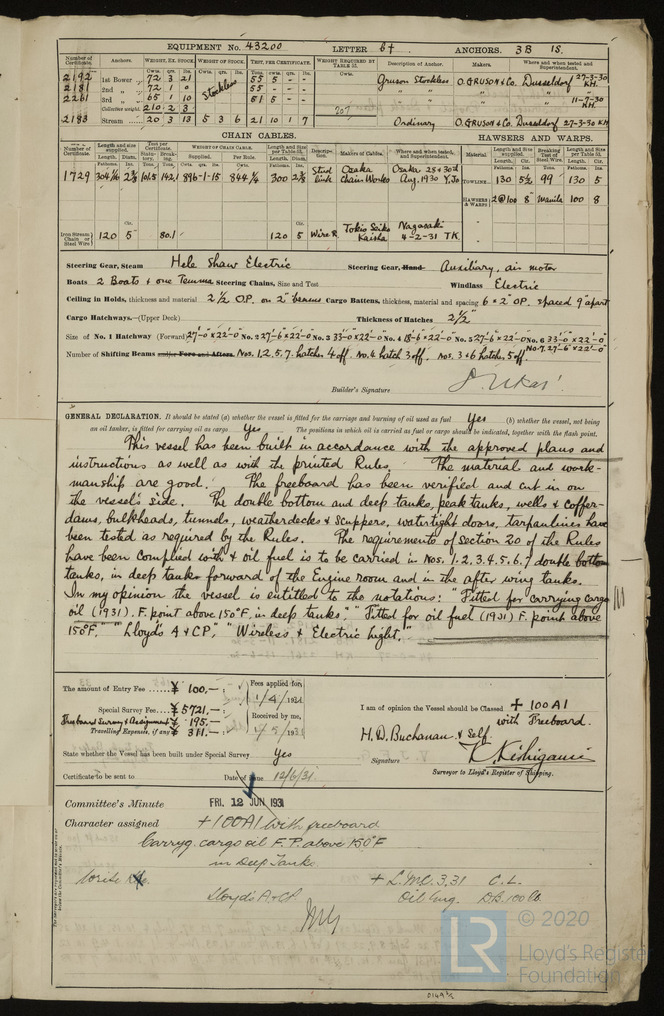 EQUIPMENT No. 43200 LETTER b† ANCHORS. 3B 1S.
Number of Certificate. Anchors. WEIGHT, EX. STOCK. WEIGHT OF STOCK. TEST, PER CERTIFICATE. WEIGHT REQUIRED BY TABLE 53. Description of Anchor. Makers. Where and when tested and Superintendent.
Cwts. qrs. lbs. Cwts. qrs. lbs. Tons. cwts. qrs. lbs. Cwts.
2192 1st Bower 72 3 21 Stockless 55 5 - - Gruson Stockless O. GRUSON & Co. Dusseldorf 27-3-30 KH.
2181 2nd " 72 1 0 55 - - - " " " " "
2261 3rd " 65 1 10 51 5 - - " " " " 11-7-30 KH.
Collective weight 210 2 3 207
2183 Stream 20 3 13 5 3 6 21 10 1 7 Ordinary O. GRUSON & Co. Dusseldorf 27-3-30 KH
CHAIN CABLES. HAWSERS AND WARPS.
Number of Certificate. Length and size supplied. Test per Certificate. WEIGHT OF CHAIN CABLE. Length and size per Table 53. Description. Makers of Cables. Where and when tested, and Superintendent. Material Length and size supplied. Breaking Test of Steel Wire. Length and size per Table 53.
Length. Diam. Statutory. Breaking. Supplied. Per Rule. Length. Diam.
1729 304 1/16 2 3/8 101.5 142.1 896-1-15 844 1/4 300 2 3/8 Stud link Osaka Chain Works Osaka 25 & 30th Aug. 1930 Y.Jo TOWLINE 130 5 1/2 99 130 5
HAWSERS & WARPS 2 @ 100 8" Manila 100 8
Iron Stream Chain or Steel Wire 120 5 80.1 120 5 Wire R. Tokio Seiko Kaisha Nagasaki 4-2-31 T.K.
Steering Gear, Steam Hele Shaw Electric Steering Gear, Hand Auxiliary, air motor
Boats 2 Boats & one Temma Steering Chains, Size and Test Windlass Electric
Ceiling in Holds, thickness and material 2 1/2 O.P. on 2" beams Cargo Battens, thickness, material and spacing 6 x 2" O.P. spaced 9" apart
Cargo Hatchways.—(Upper Deck) Thickness of Hatches 2 1/2"
Size of No. 1 Hatchway (Forward) 27'-0" x 22'-0" No. 2 27'-6" x 22'-0" No. 3 33'-0" x 22'-0" No. 4 18'-6" x 22'-0" No. 5 27'-6" x 22'-0" No. 6 33'-0" x 22'-0"
No. 7. 27'-6" x 22'-0"
Number of Shifting Beams and/or Fore and Afters. Nos. 1, 2, 5, 7. hatches 4 off. No. 4 hatch 3 off. Nos. 3 & 6 hatches, 5 off
Builder's Signature
GENERAL DECLARATION. It should be stated (a) whether the vessel is fitted for the carriage and burning of oil used as fuel Yes (b) whether the vessel, not being
an oil tanker, is fitted for carrying oil as cargo Yes The positions in which oil is carried as fuel or cargo should be indicated, together with the flash point.
This vessel has been built in accordance with the approved plans and
instructions as well as with the printed Rules. The material and work-
manship are good. The freeboard has been verified and cut in on
the vessel's side. The double bottom and deep tanks, peak tanks, wells & coffer-
dams, bulkheads, tunnels, weatherdecks & scuppers, watertight doors, tarpaulines have
been tested as required by the Rules. The requirements of Section 20 of the Rules
have been complied with & oil fuel is to be carried in Nos. 1. 2. 3. 4. 5. 6. 7 double bottom
tanks, in deep tanks forward of the Engine room and in the after wing tanks.
In my opinion the vessel is entitled to the notations: "Fitted for carrying cargo
oil (1931). F. point above 150°F. in deep tanks", "Fitted for oil fuel (1931) F. point above
150°F." "Lloyd's A & CP", "Wireless & Electric Light."
The amount of Entry Fee ... ¥ 100.—
Special Survey Fee ... ¥ 5721.—
Freeboard Survey & Assignment ¥ 195.—
Travelling Expenses, if any ¥ 311.—
Fees applied for, 1/4/1931
Received by me, 1/5/1931
State whether the Vessel has been built under Special Survey Yes
Certificate to be sent to Date of issue 12/6/31
I am of opinion the Vessel should be Classed + 100 A1
with Freeboard.
H. D. Buchanan & Self.
Signature K. Kishigami
Surveyor to Lloyd's Register of Shipping.
Committee's Minute FRI. 12 JUN 1931
Character assigned + 100 A1 with freeboard
Carryg. cargo oil F.P. above 150°F
in Deep Tanks
Write + L.M.C. 3.31 C.L.
Lloyd's A & CP Oil Eng. D.B. 100 lb.
© 2020
LR Lloyd's Register
Foundation